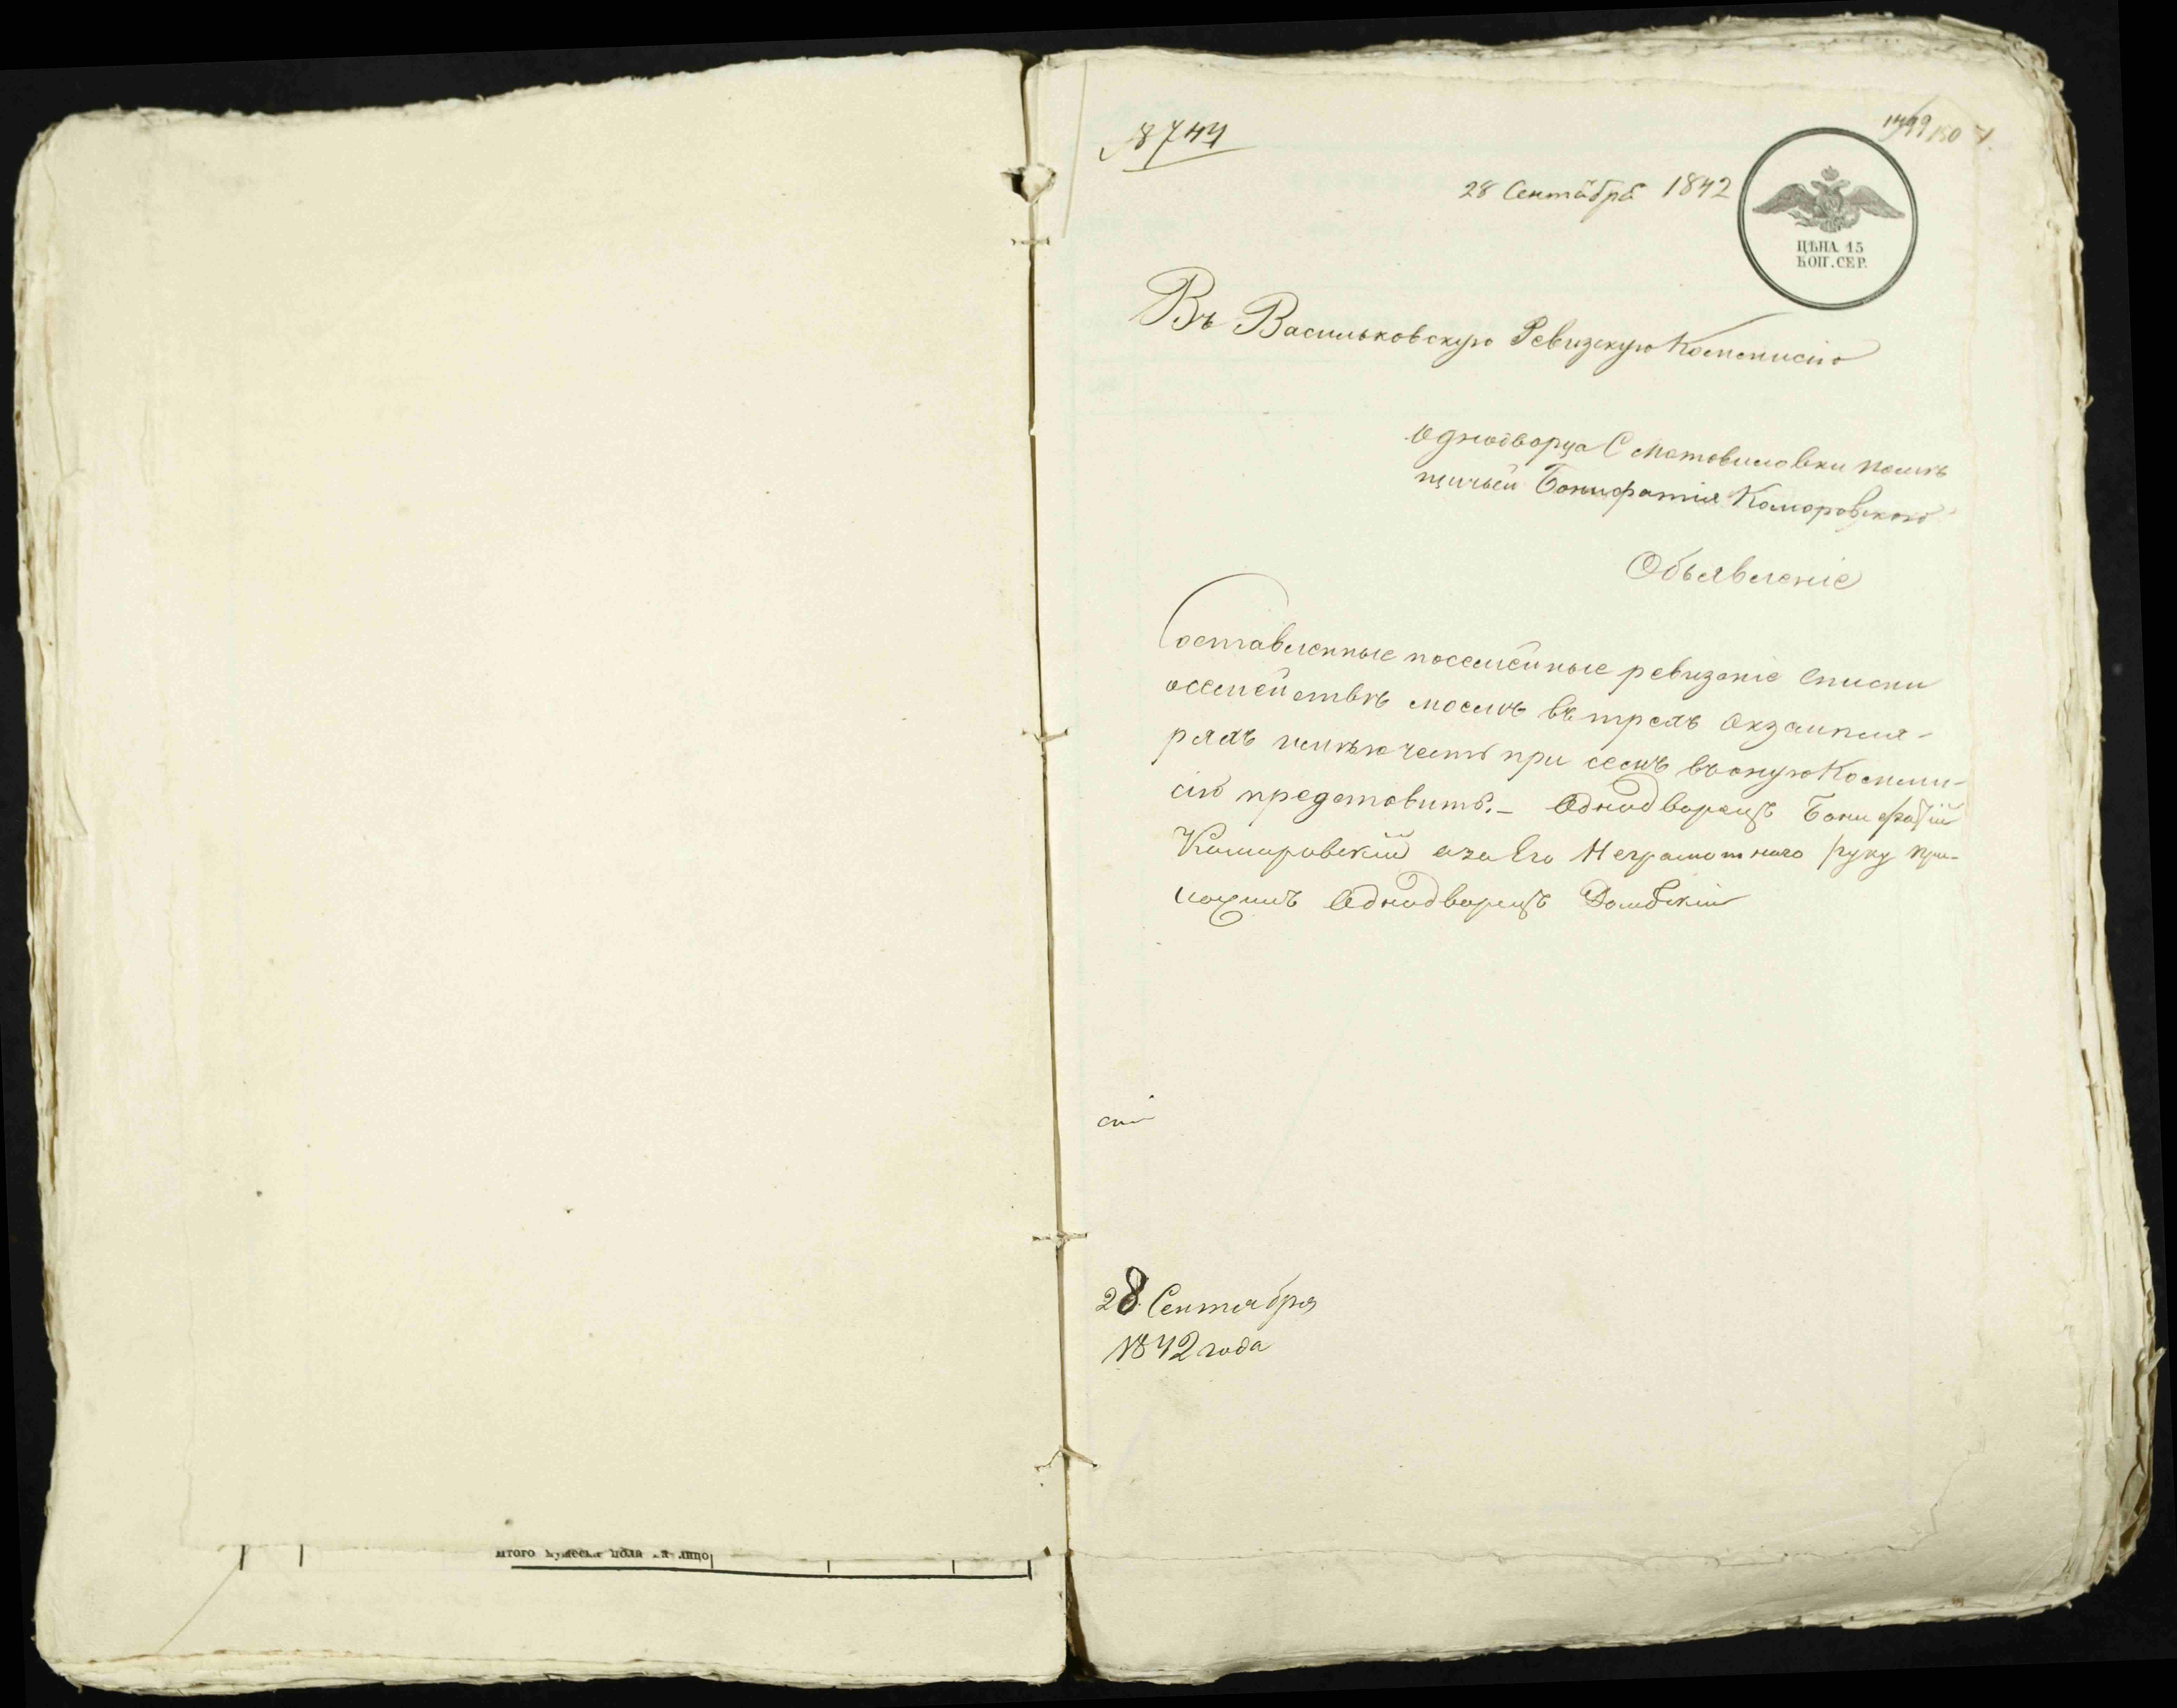 итого мужеска пола на лицо
№ 8744
28 Сентября 1842
ЦѢНА 15
КОП. СЕР.
Въ Васильковскую Ревизскую Коммисію
Однодворца С Мотовиловки помѣ
щичьей Бонифатія Коморовского
Объявленіе
Составленные посемейные ревизскіе списки
осемействѣ моемъ въ трехъ Экземпля-
рахъ имѣю честь при семъ въ оную Комми-
сію представить. - Однодворецъ Бонифатій
Коморовскій а за Его Неграмотного руку при-
ложилъ Однодворецъ Домбскій
28 Сентября
1842 года